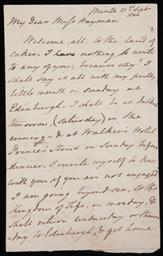 Minto 21 Sept
1804
My Dear Miss Hayman
Welcome all to the land of
cakes. I have nothing to write
to any of you; because why? I
shall say it all with my pretty
little mouth on Sunday at
Edinburgh. I shall be at
tomorrow (Saturday) in the
evening & at Walker's Hotel
Prince's Street on Sunday before
dinner. I invite myself to dine
with you if you are not engaged
I am going beyond sea, to the
Kingdom of Fife, on monday, &
shall return wednesday or thurs
day to Edinburgh, & get home